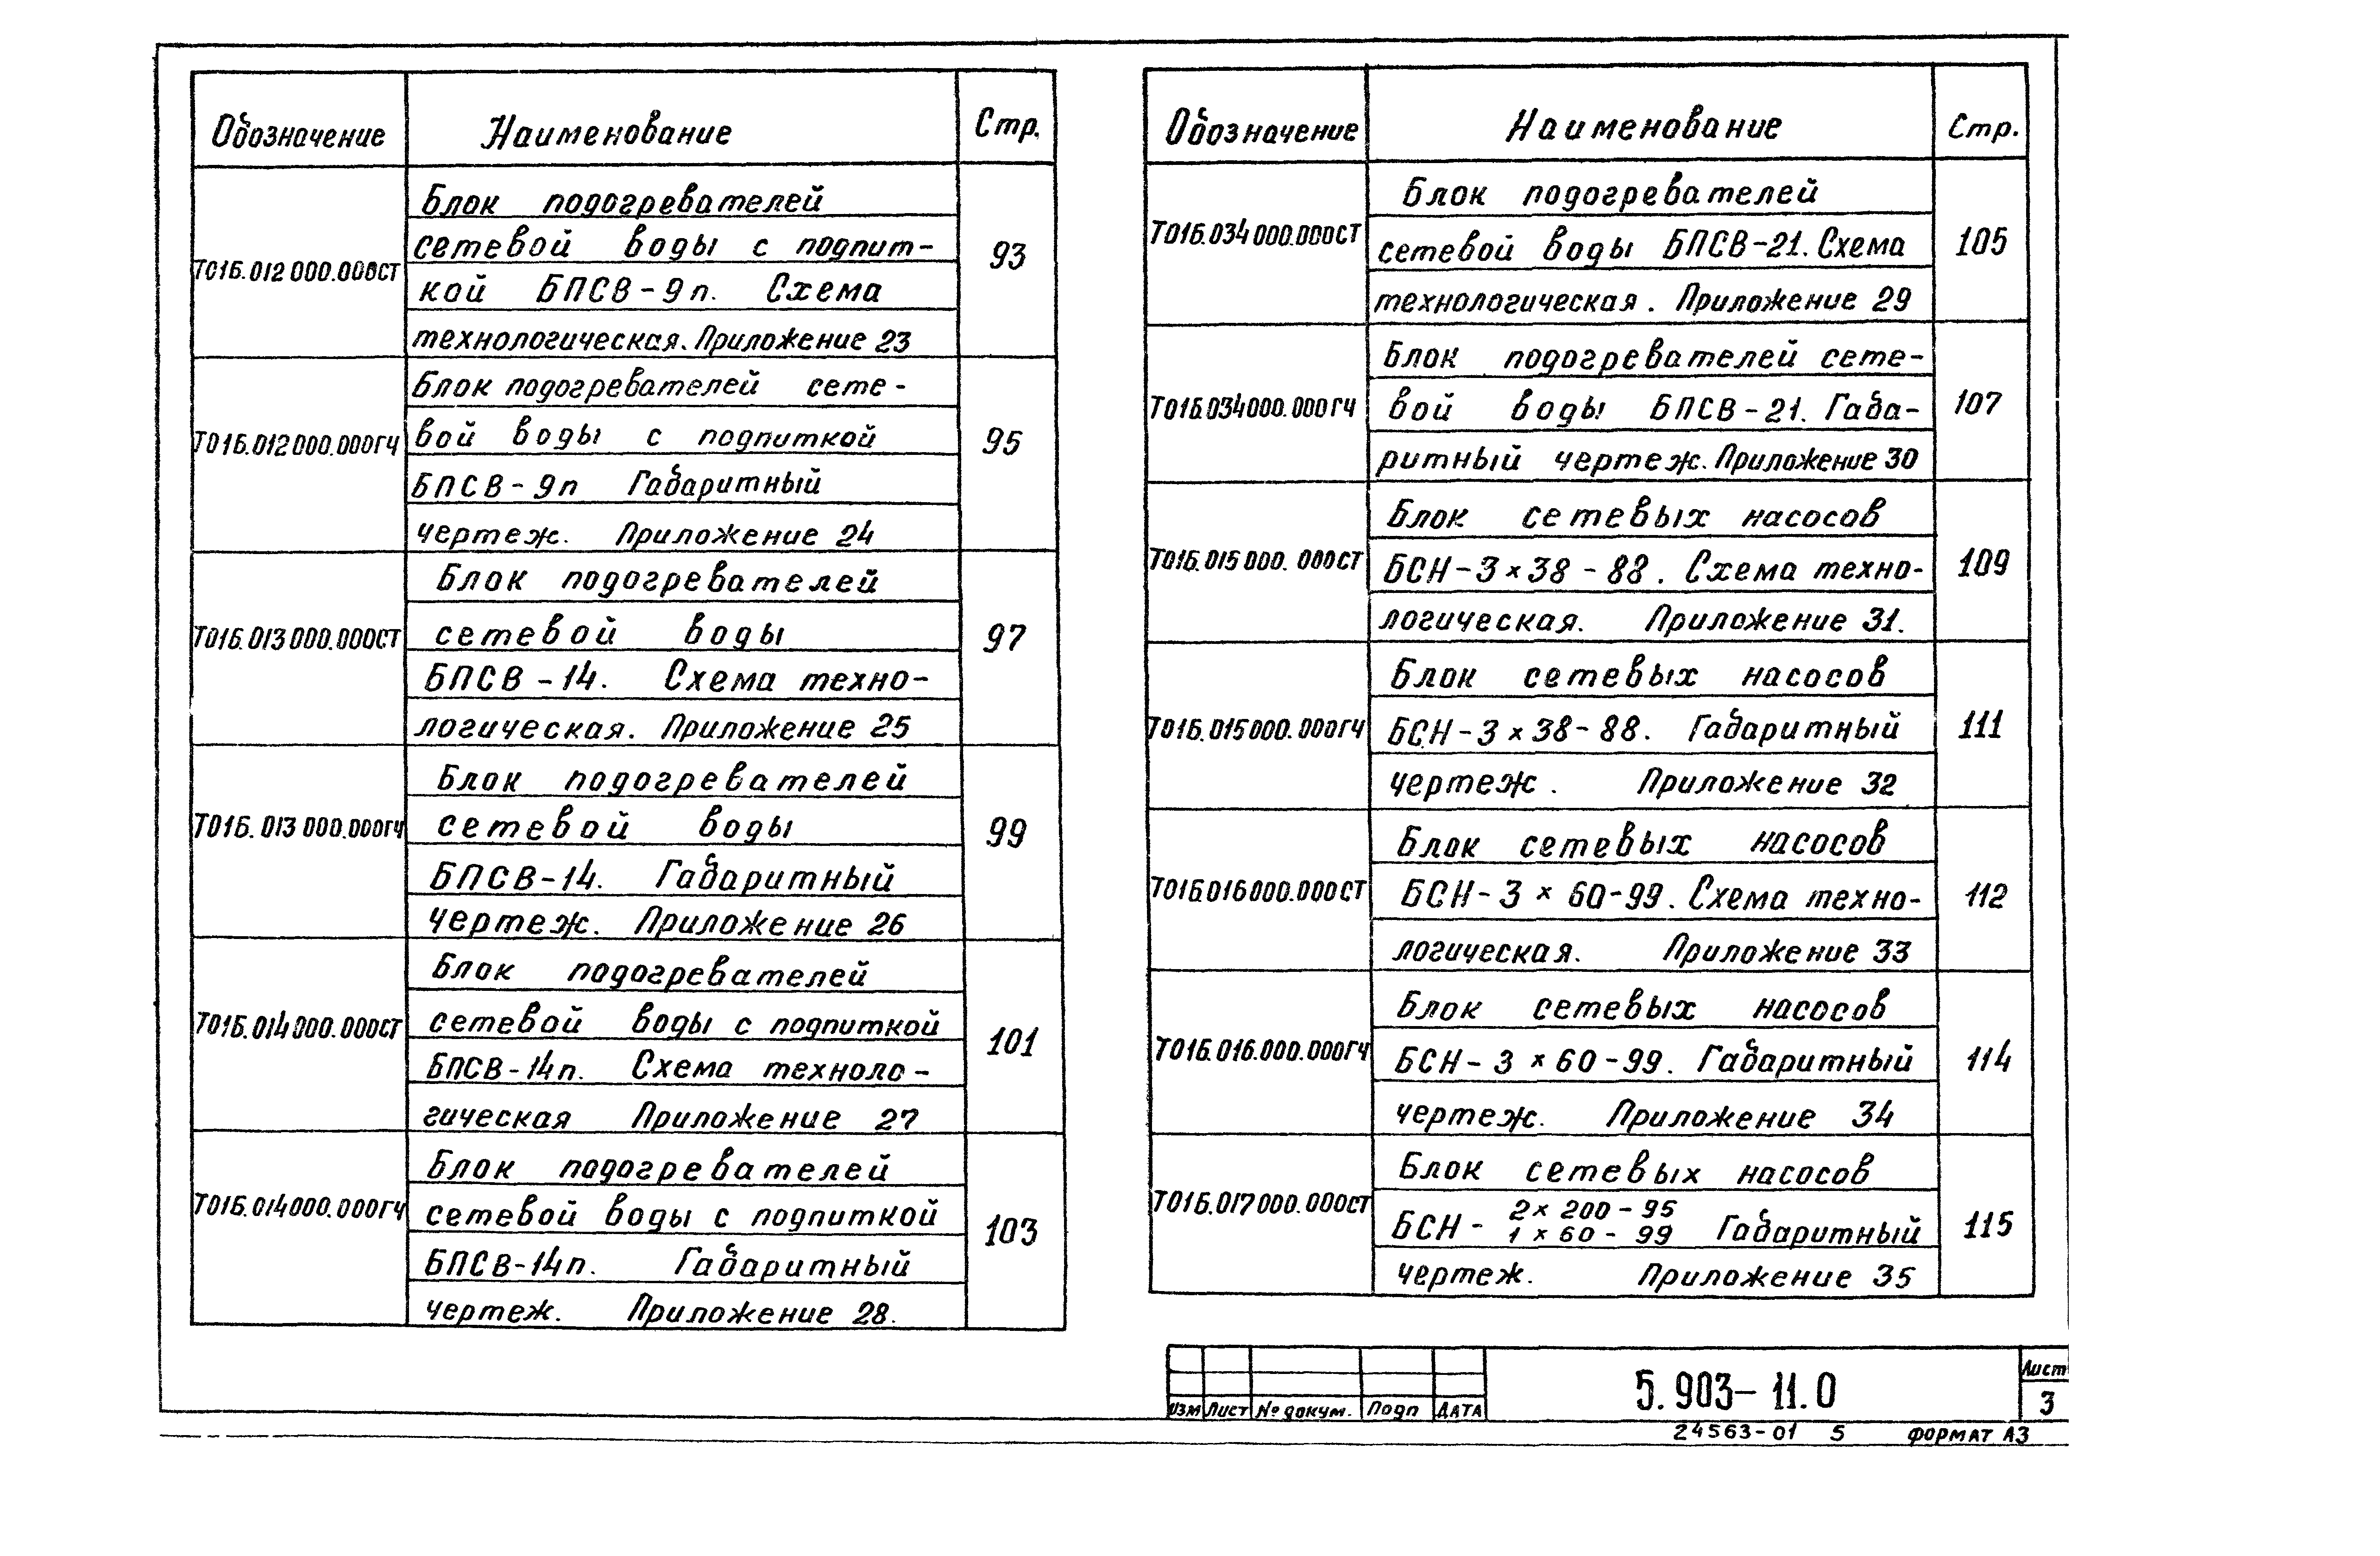 Обозначение Наименование Стр.
Блок подогревателей
сетевой воды с подпит-
Т01Б.012 000.000СТ 93
кой БПСВ-9п. Схема
технологическая. Приложение 23
Блок подогревателей сете-
вой воды с подпиткой
Т01Б.012000.000ГЧ 95
БПСВ-9п Габаритный
чертеж. Приложение 24
Блок подогревателей
сетевой воды
Т01Б.013 000.000СТ 97
БПСВ-14. Схема техно-
логическая. Приложение 25
Блок подогревателей
сетевой воды
Т01Б.013 000.000ГЧ 99
БПСВ-14. Габаритный
чертеж. Приложение 26
Блок подогревателей
сетевой воды с подпиткой
Т01Б.014 000.000СТ 101
БПСВ-14п. Схема техноло-
гическая Приложение 27
Блок подогревателей
Т01Б.014000.000ГЧ
сетевой воды с подпиткой
103
БПСВ-14п. Габаритный
чертеж. Приложение 28.
Обозначение Наименование Стр.
Блок подогревателей
Т01Б.034 000.000СТ 105
сетевой воды БПСВ-21. Схема
технологическая. Приложение 29
Блок подогревателей сете-
Т01Б.034000.000ГЧ 107
вой воды БПСВ-21. Габа-
ритный чертеж. Приложение 30
Блок сетевых насосов
Т01Б.015 000.000СТ 109
БСН-3×38-88. Схема техно-
логическая. Приложение 31.
Блок сетевых насосов
Т01Б.015000.000ГЧ 111
БСН-3×38-88. Габаритный
чертеж. Приложение 32
Блок сетевых насосов
Т01Б016000.000СТ 112
БСН-3×60-99. Схема техно-
логическая. Приложение 33
Блок сетевых насосов
Т01Б.016.000.000ГЧ 114
БСН-3×60-99. Габаритный
чертеж. Приложение 34
Блок сетевых насосов
Т01Б.017000.000СТ 115
2×200-95
БСН- Габаритный
1×60-99
чертеж. Приложение 35
Изм Лист № докум. Подп ДАТА
5.903-11.0
Лист
3
24563-01 5 ФОРМАТ А3